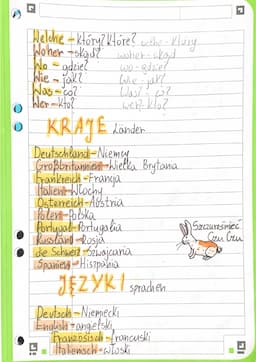 Welche - który? które? welche - który
Woher - skąd? woher - skąd
Wo - gdzie? wo - gdzie?
Wie - jak? Wie - jak?
Was - co? Was? - co?
Wer - kto? wer? kto?
KRAJE Länder
Deutschland - Niemcy
Großbritannien - Wielka Brytania
Frankreich - Francja
Italien - Włochy
Österreich - Austria
Polen - Polska
Portugal - Portugalia
Russland - Rosja
die Schweiz - Szwajcaria
Spanien - Hiszpania
JĘZYKI sprachen
Deutsch - Niemiecki
English - angelski
Französisch - francuski
Italienisch - włoski